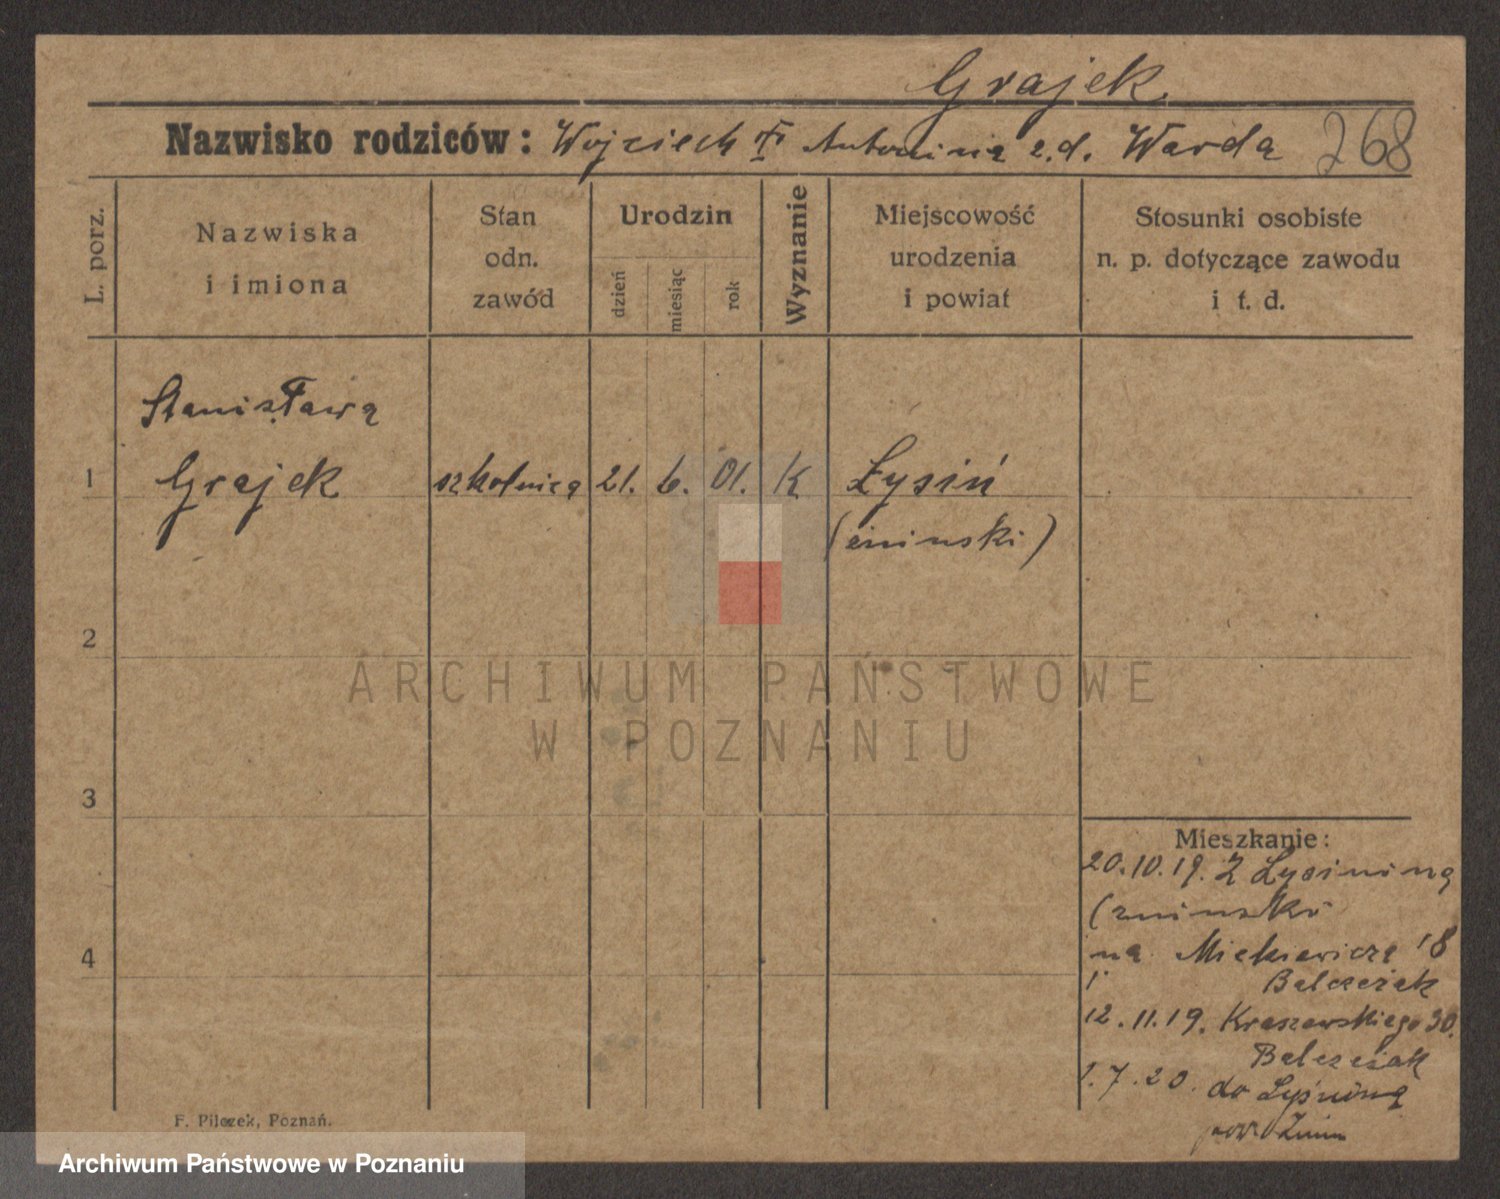 Grajek
Nazwisko rodziców: Wojciech Antonina z.d. Warda 268
L. porz.
Nazwiska
i imiona
Stan
odn.
zawód
Urodzin
dzień
miesiąc
rok
Wyznanie
Miejscowość
urodzenia
i powiat
Stosunki osobiste
n. p. dotyczące zawodu
i t. d.
Stanisława
1 Grajek szkolnica 21. 6. 01. K Łysiń
(żniński)
2
3
4
ARCHIWUM PAŃSTWOWE
W POZNANIU
Mieszkanie:
20.10.19. Z Łysinina
(żniński
na Mickiewicza 18
Balcerak
12.11.19. Kraszewskiego 30.
Balcerak
1.7.20. do Łysinina
pow. Żnin
F. Pilczek, Poznań.
Archiwum Państwowe w Poznaniu